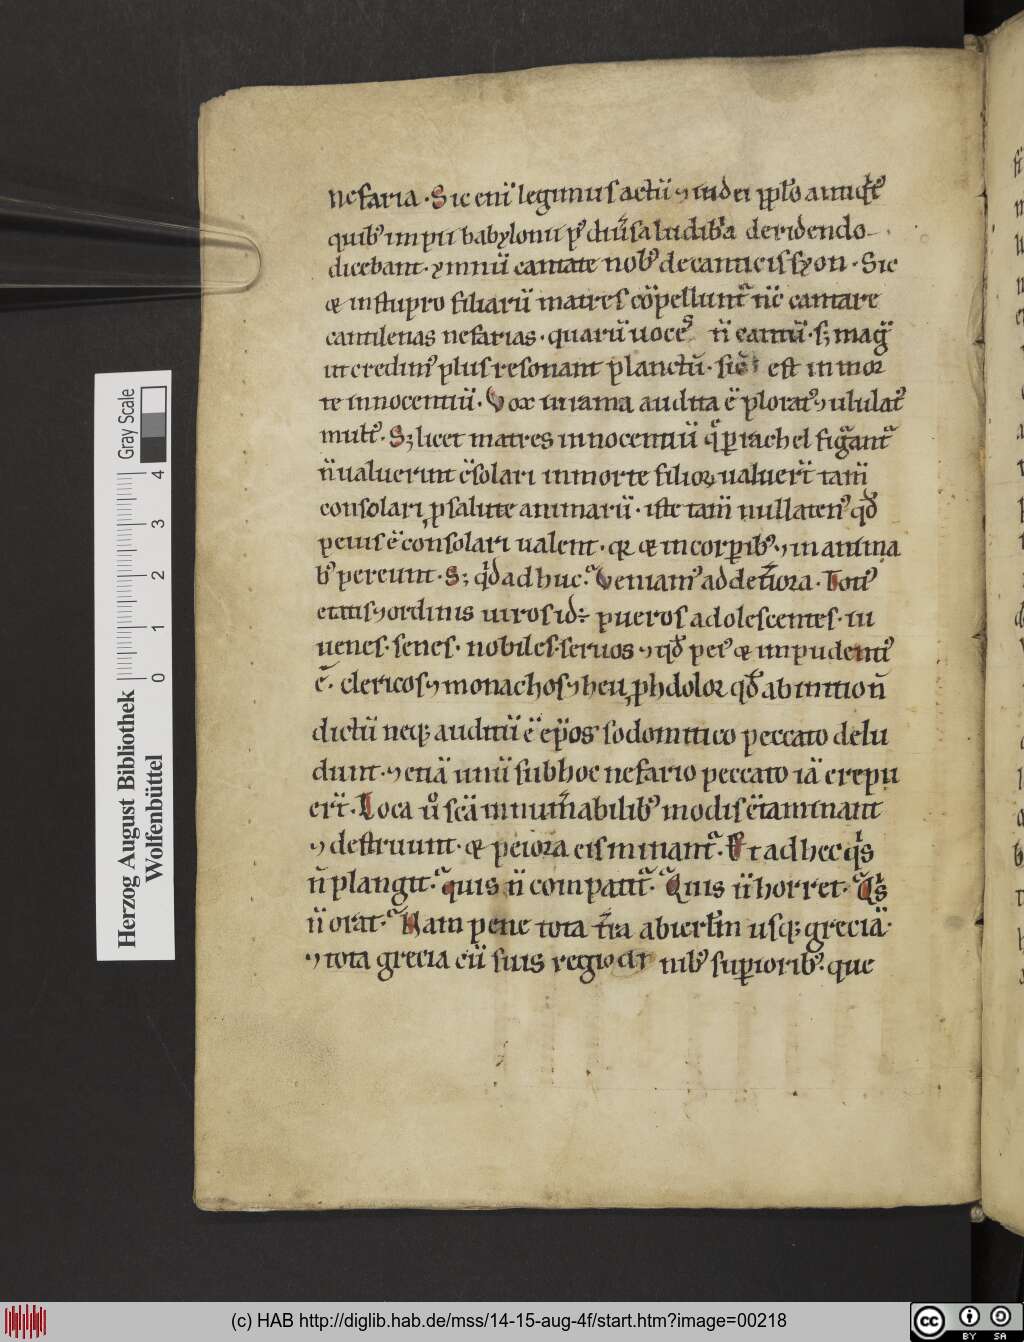 nefaria. Sic eni legimus actū ⁊ iudei pp̄lo antiq̄
quib' impii babylonii p' diūsa ludib'a deridendo
dicebant. ymnū cantate nob' de canticis syon. Sic
& in stupro filiarū matres cōpellunt̄ nc̄ cantare
cantilenas nefarias. quarū uoces n̄ cantū. s; maḡ
ut credim' plus resonant planctū. est in mor
te innocentiū. Vox in rama audita ē plorat' ⁊ ululat'
mult'. S; licet matres innocentiū rachel
n̄ ualuerunt c̄solari in morte filioꝝ ualuer̄t tam̄
consolari p salute animarū. iste tam̄ nullaten' qd̄
peius ē consolari ualent. & in corporib' ⁊ in anima
b' pereunt. S; qd adhuc. Veniam' ad det̄iora. Toti'
etatis ⁊ ordinis uiros id÷ pueros adolescentes. iu
uenes. senes. nobiles. seruos ⁊ qd̄ pei' & impudenti'
ē. clericos ⁊ monachos ⁊ heu, ꝓh dolor qd̄ ab initio n̄
dictū neq; auditū ē ep̄os sodomitico peccato delu
dunt. ⁊ etiā unū sub hoc nefario peccato iā crepu
er̄t. Loca ū scā innum̄abilib' modis c̄taminant
⁊ destruunt. & peiora eis minant̄. Et ad hec q's
n̄ plangit. Quis n̄ compatit̄. Quis n̄ horret. Q's
n̄ orat. Nam pene tota t̄ra ab ierl̄m usq; greciā.
⁊ tota grecia cū suis regio nib' superiorib'. que
Gray Scale
4
3
2
1
0
Herzog August Bibliothek
Wolfenbüttel
(c) HAB http://diglib.hab.de/mss/14-15-aug-4f/start.htm?image=00218
cc
BY SA